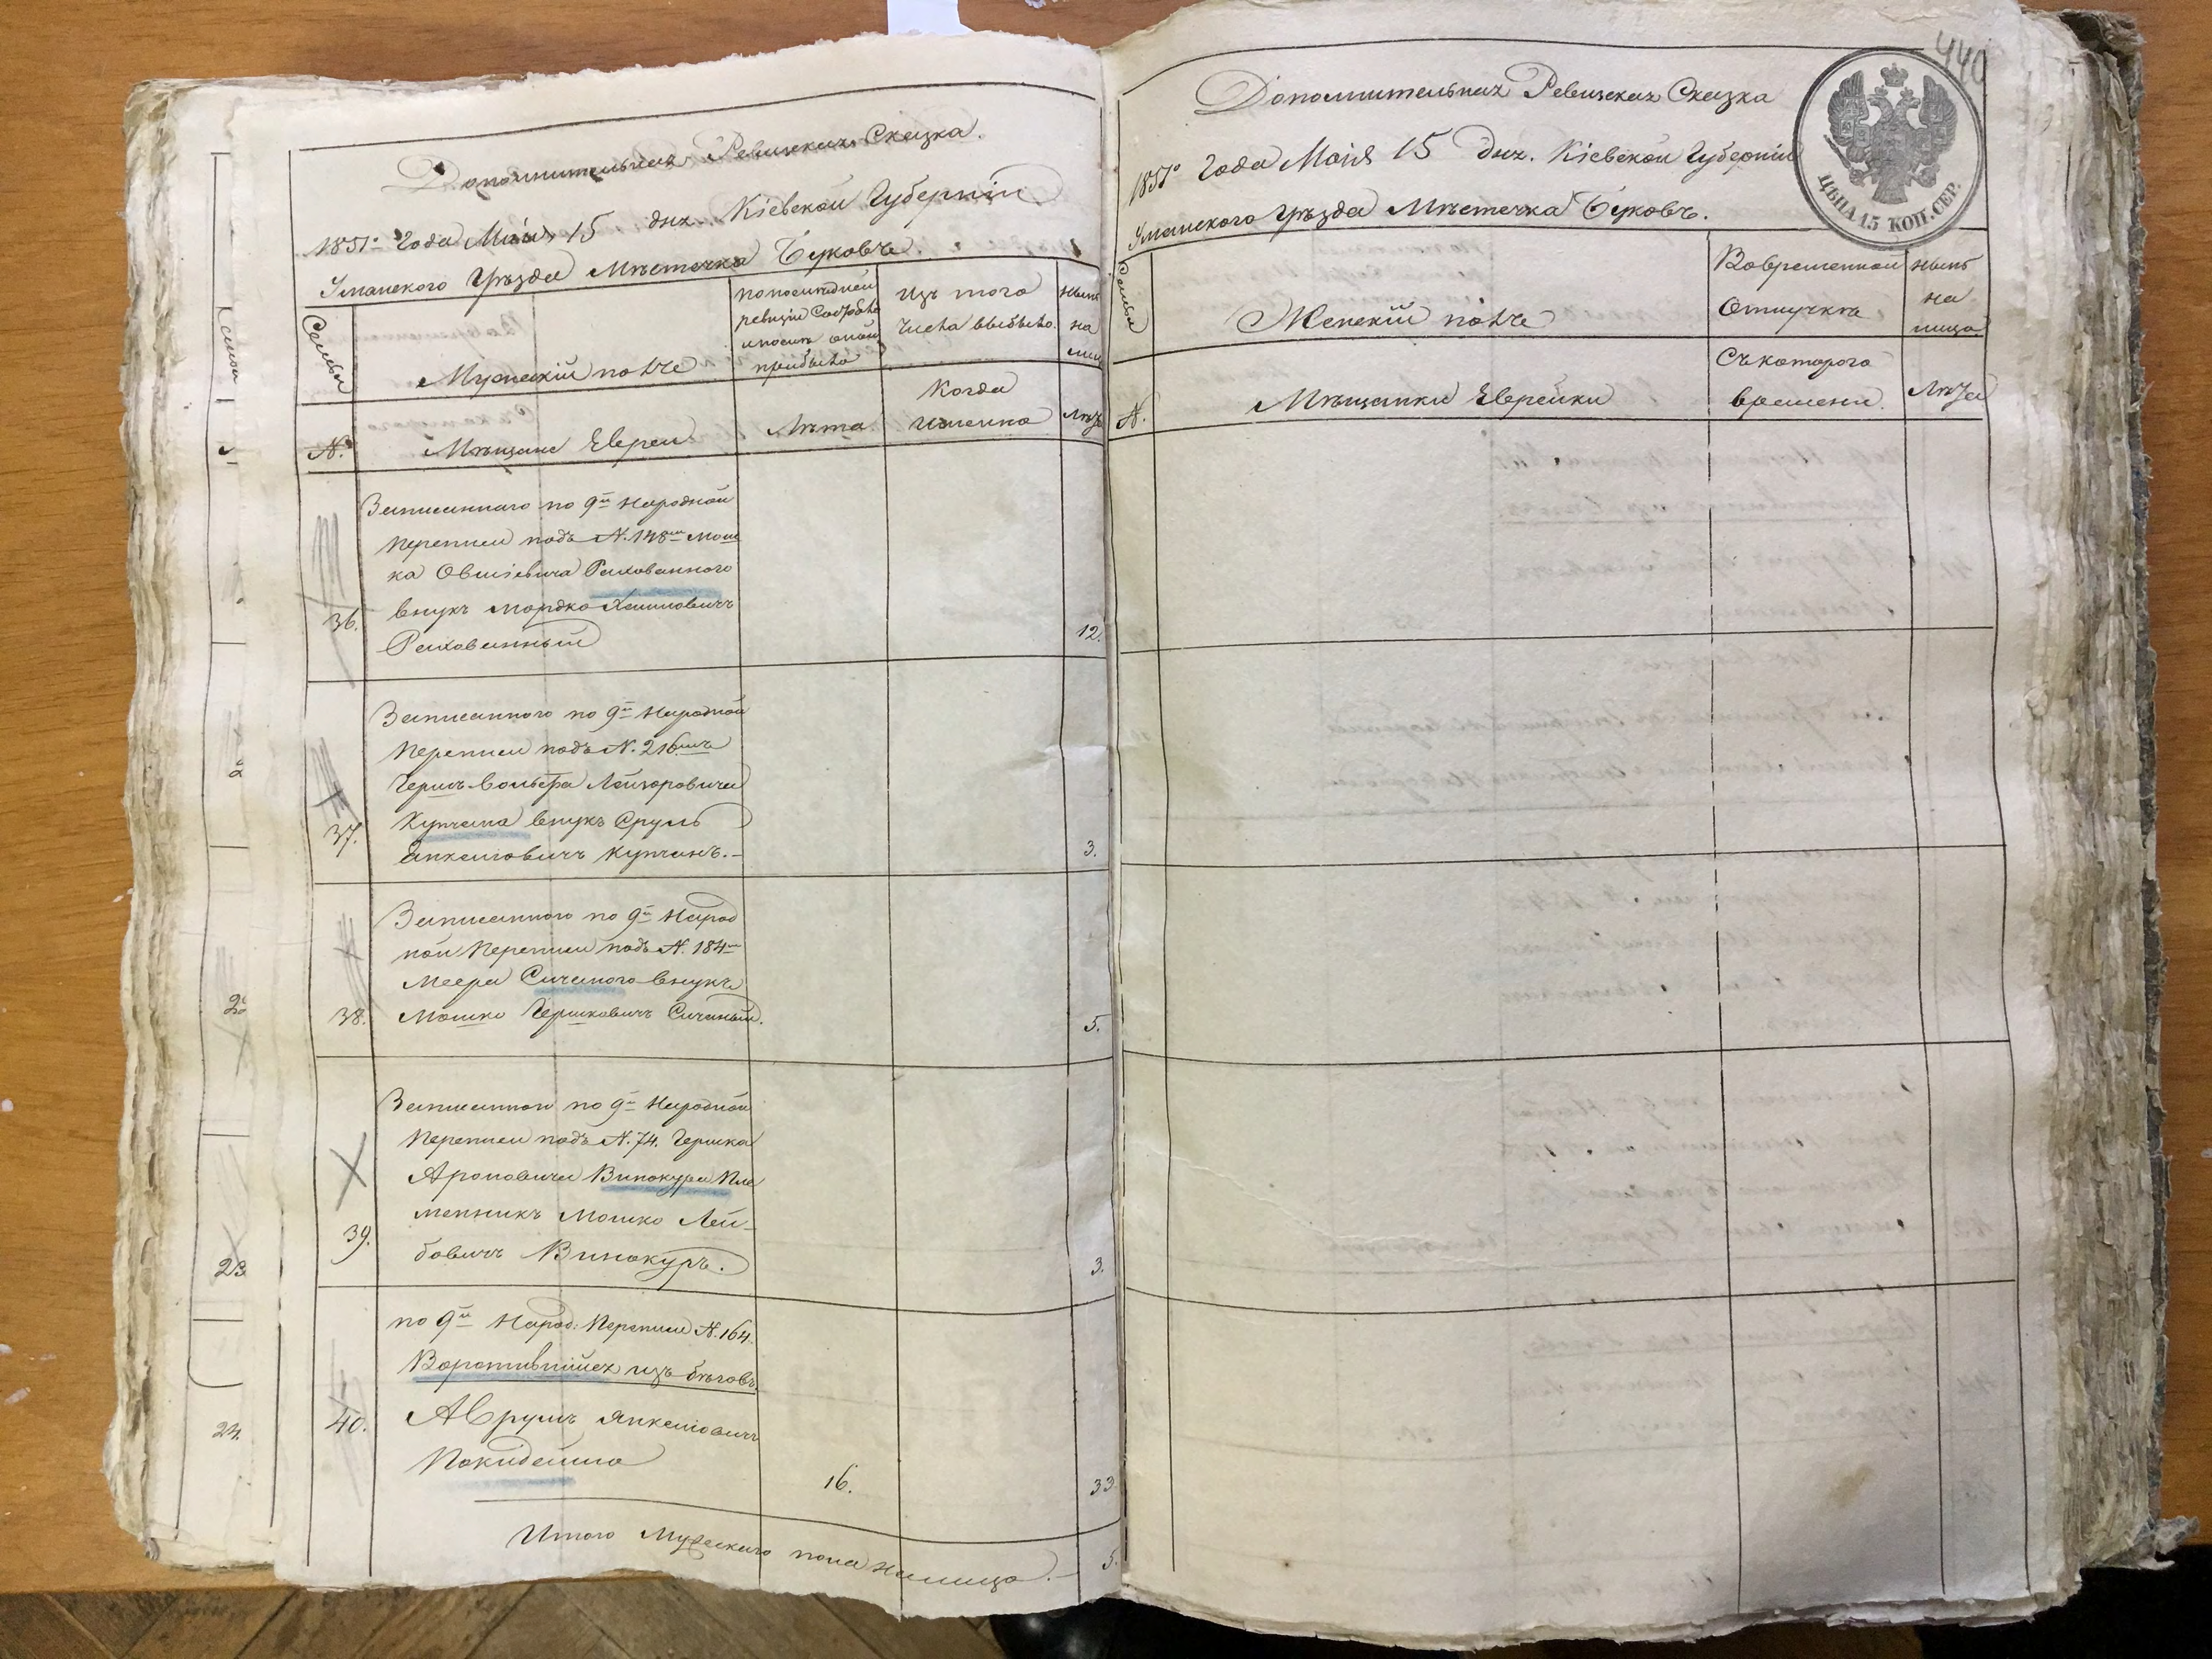 Дополнительная Ревизская Сказка.
1851го Года Маія 15 дня. Кіевской Губерніи
Уманского Уѣзда Мѣстечка Буковъ.
Семьи
Мужескій полъ
по последней
ревизіи Состояло
и после оной
прибыло
Изъ того
числа выбыло.
Ныне
на
лицо
№.
Мѣщане Евреи
Лѣта
Когда
именно
Лѣта
Записанного по 9й Народной
Переписи подъ №. 148мъ Мош
ка Овшіевича Рахованного
внукъ Мордко Хаимовичъ
36.
Рахованный
12.
Записанного по 9й Народной
Переписи подъ №. 216мъ
Гершъ-Вольфа Лейзоровича
Купчина внукъ Сруль
37.
Янкеліовичъ Купчинъ.
3.
Записанного по 9й Народ
ной Переписи подъ №. 184мъ
Меера Сичаного внукъ
38.
Мошко Гершковичъ Сичаный.
5.
Записанного по 9й Народной
Переписи подъ №. 74. Гершка
Ароновича Винокура Пле
менникъ Мошко Лей-
39.
бовичъ Винокуръ.
3.
по 9й Народ: Переписи №. 164.
Воротившійся изъ бѣговъ
40.
Аврумъ Янкеліовичъ
Покидайло
16.
33
Итого Мужеского пола налицо.
5.
440
Дополнительная Ревизская Сказка
1851го Года Маія 15 дня. Кіевской Губерніи
Уманского Уѣзда Мѣстечка Буковъ.
ЦѢНА 15 КОП. СЕР.
Семьи
Женскій полъ
Во временной
Отлучкѣ
Ныне
на
лицо
№.
Мѣщанки Еврейки
Съ которого
времени.
Лѣта
2
22
23
24.